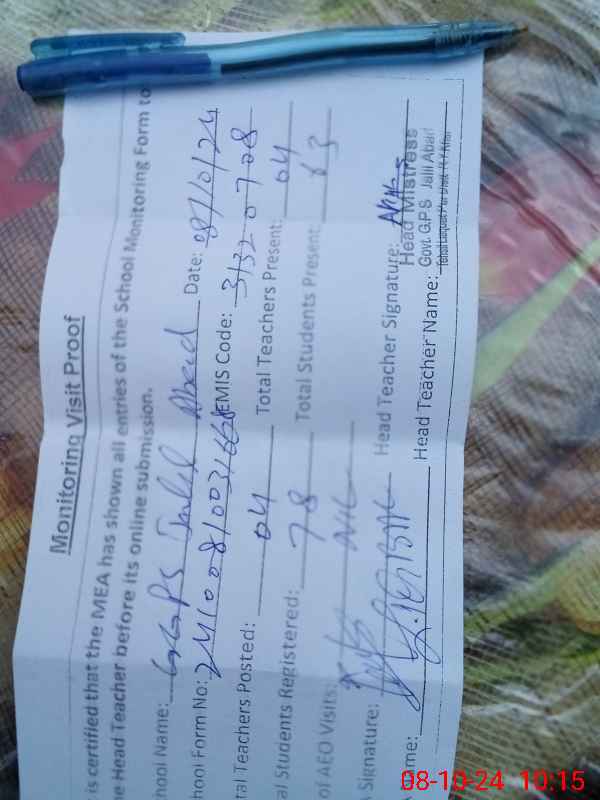 Monitoring Visit Proof
is certified that the MEA has shown all entries of the School Monitoring Form to
Head Teacher before its online submission.
School Name: GGPS Jalil Abad Date: 08/10/24
School Form No: EMIS Code: 31320708
Total Teachers Posted: 04 Total Teachers Present: 04
Total Students Registered: 78 Total Students Present: 63
of AEO Visits:
Signature: Head Teacher Signature:
Name: Head Teacher Name:
Head Mistress
Govt. G.P.S Jalil Abad
08-10-24 10:15